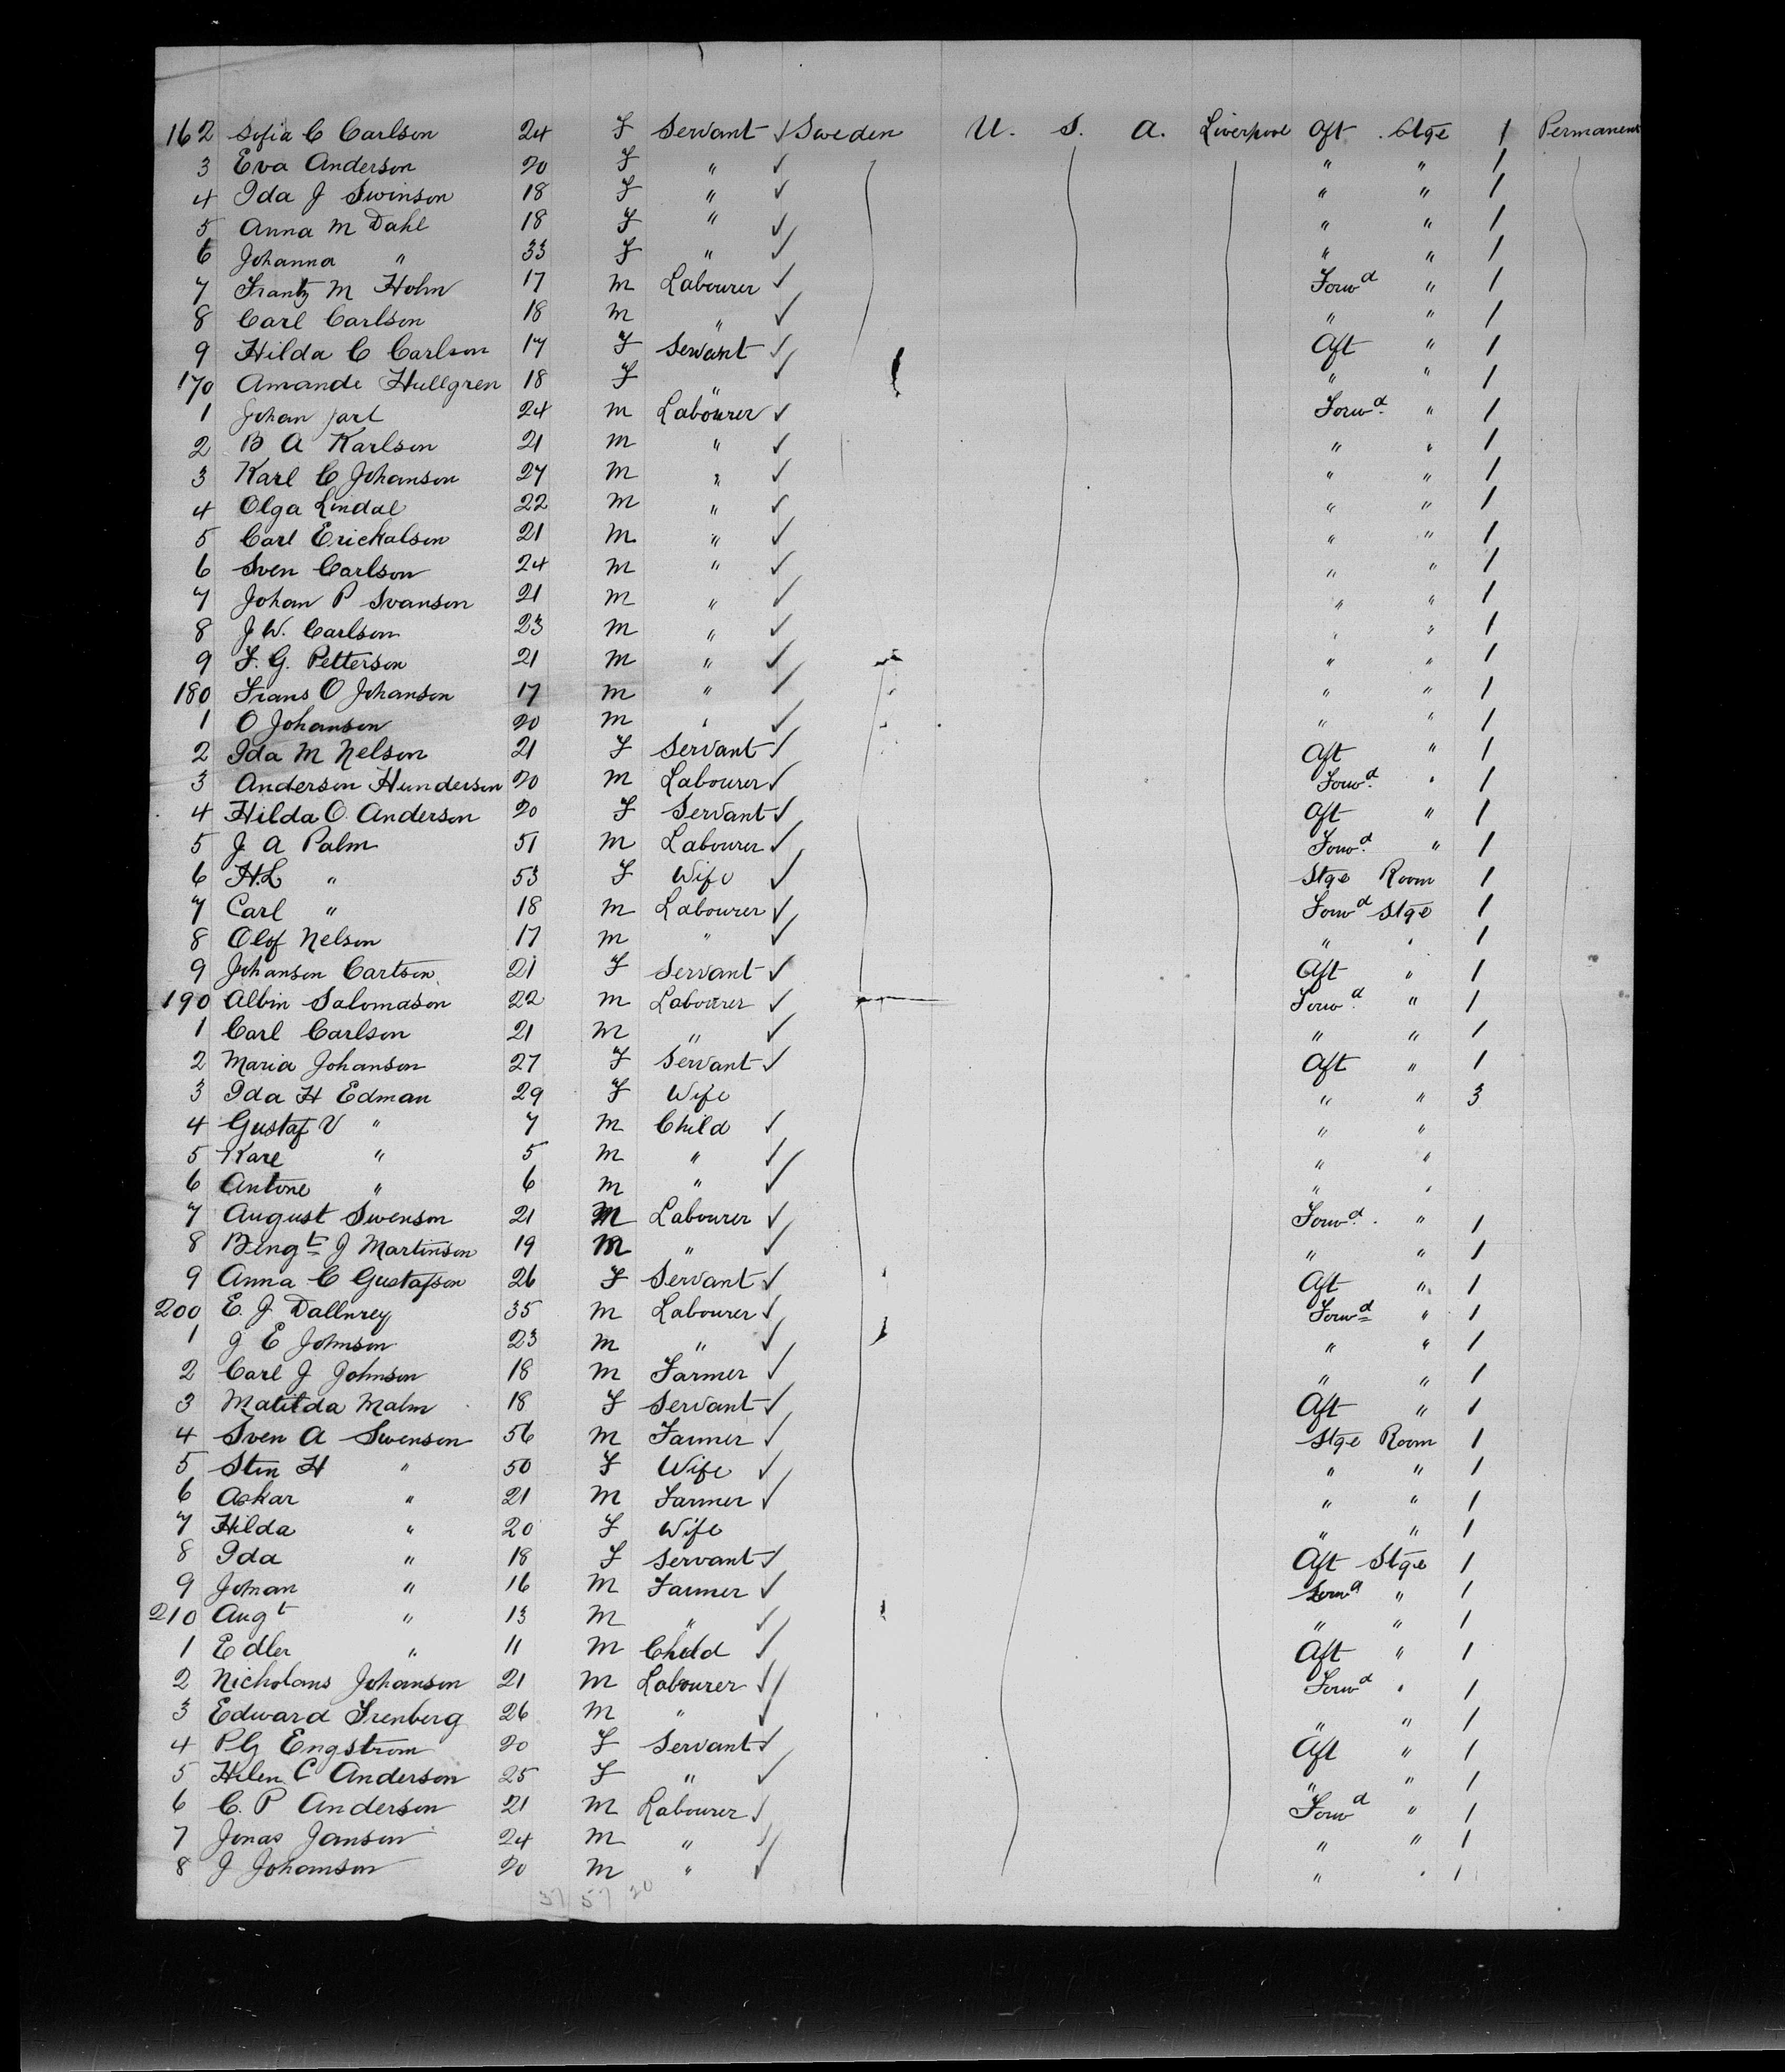 162 Sofia C Carlson 24 F Servant ✓ Sweden U. S. A. Liverpool Aft Stge 1 Permanent
3 Eva Anderson 20 F " ✓ " " 1
4 Ida J Swinson 18 F " ✓ " " 1
5 Anna M Dahl 18 F " ✓ " " 1
6 Johanna " 33 F " ✓ " " 1
7 Frantz M Holm 17 M Labourer ✓ Forwd " 1
8 Carl Carlson 18 M " ✓ " " 1
9 Hilda C Carlson 17 F Servant ✓ Aft " 1
170 Amande Hullgren 18 F " ✓ " " 1
1 Johan Jarl 24 M Labourer ✓ Forwd. " 1
2 B A Karlson 21 M " ✓ " " 1
3 Karl C Johanson 27 M " ✓ " " 1
4 Olga Lindal 22 M " ✓ " " 1
5 Carl Erickalson 21 M " ✓ " " 1
6 Sven Carlson 24 M " ✓ " " 1
7 Johan P Svanson 21 M " ✓ " " 1
8 J W. Carlson 23 M " ✓ " " 1
9 F. G. Petterson 21 M " ✓ " " 1
180 Frans O Johanson 17 M " ✓ " " 1
1 O Johanson 20 M " ✓ " " 1
2 Ida M Nelson 21 F Servant ✓ Aft " 1
3 Anderson Hunderson 20 M Labourer ✓ Forwd. " 1
4 Hilda O. Anderson 20 F Servant ✓ Aft " 1
5 J A Palm 51 M Labourer ✓ Forwd. " 1
6 H.L " 53 F Wife ✓ Stge Room 1
7 Carl " 18 M Labourer ✓ Forwd Stge 1
8 Olof Nelson 17 M " ✓ " " 1
9 Johanson Cartson 21 F Servant ✓ Aft " 1
190 Albin Salomason 22 M Labourer ✓ Forwd. " 1
1 Carl Carlson 21 M " ✓ " " 1
2 Maria Johanson 27 F Servant ✓ Aft " 1
3 Ida H Edman 29 F Wife " " 3
4 Gustaf V " 7 M Child ✓ " "
5 Karl " 5 M " ✓ " "
6 Antone " 6 M " ✓ " "
7 August Swenson 21 M Labourer ✓ Forwd. " 1
8 Bengt J Martinson 19 M " ✓ " " 1
9 Anna C Gustafson 26 F Servant ✓ Aft " 1
200 E. J. Dallnrey 35 M Labourer ✓ Forwd " 1
1 J E Johnson 23 M " ✓ " " 1
2 Carl J Johnson 18 M Farmer ✓ " " 1
3 Matilda Malm 18 F Servant ✓ Aft " 1
4 Sven A Swenson 56 M Farmer ✓ Stge Room 1
5 Stin H " 50 F Wife ✓ " " 1
6 Askar " 21 M Farmer ✓ " " 1
7 Hilda " 20 F Wife " " 1
8 Ida " 18 F Servant ✓ Aft Stge 1
9 Johan " 16 M Farmer ✓ Forwd " 1
210 Augt " 13 M " ✓ " " 1
1 Edler " 11 M Child ✓ Aft " 1
2 Nicholans Johanson 21 M Labourer ✓ Forwd " 1
3 Edward Frenberg 26 M " ✓ " " 1
4 P G Engstrom 20 F Servant ✓ Aft " 1
5 Helen C Anderson 25 F " ✓ " " 1
6 C. P Anderson 21 M Labourer ✓ Forwd " 1
7 Jonas Janson 24 M " ✓ " " 1
8 J Johanson 20 M " ✓ " " 1
37 57 20